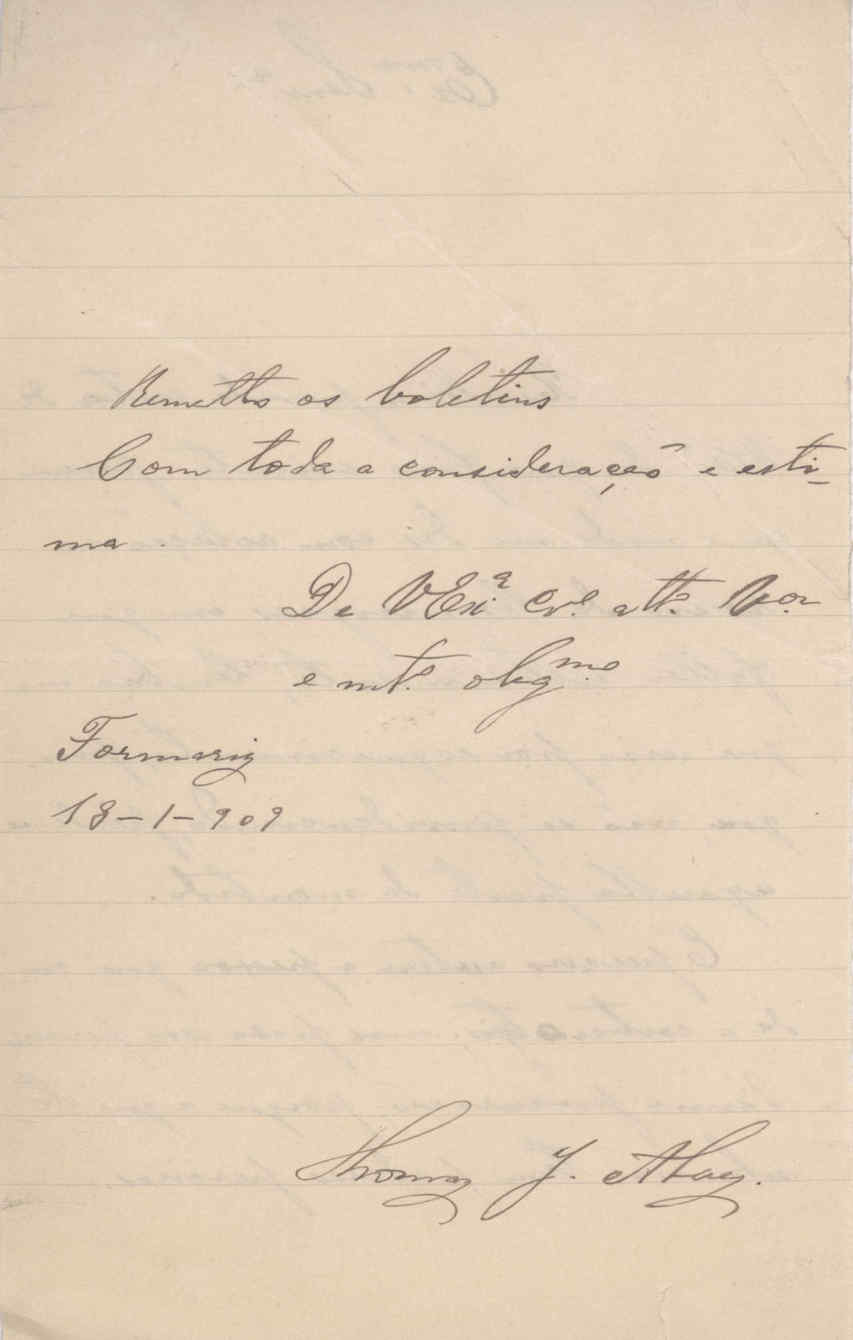 Remetto os boletins
Com toda a consideração e esti-
ma.
De VExª Crº. attº. Vºr
e mtº. obgmº
Formariz
13-1-909
Thomaz J.